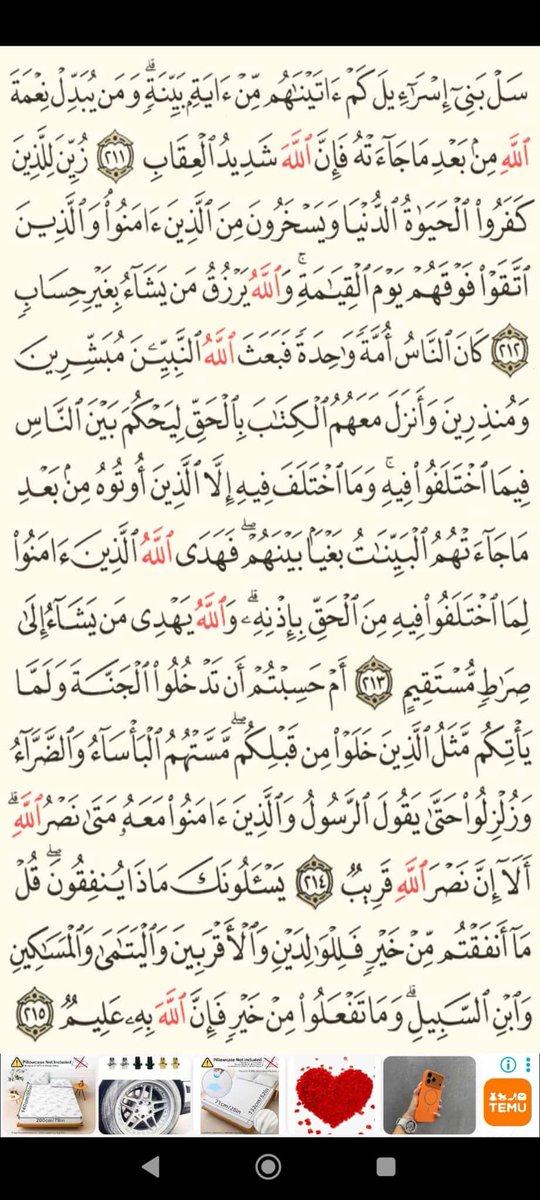 سَلْ بَنِىٓ إِسْرَٰٓءِيلَ كَمْ ءَاتَيْنَٰهُم مِّنْ ءَايَةٍۭ بَيِّنَةٍۗ وَمَن يُبَدِّلْ نِعْمَةَ
ٱللَّهِ مِنۢ بَعْدِ مَا جَآءَتْهُ فَإِنَّ ٱللَّهَ شَدِيدُ ٱلْعِقَابِ ٢١١ زُيِّنَ لِلَّذِينَ
كَفَرُوا۟ ٱلْحَيَوٰةُ ٱلدُّنْيَا وَيَسْخَرُونَ مِنَ ٱلَّذِينَ ءَامَنُوا۟ۘ وَٱلَّذِينَ
ٱتَّقَوْا۟ فَوْقَهُمْ يَوْمَ ٱلْقِيَٰمَةِۗ وَٱللَّهُ يَرْزُقُ مَن يَشَآءُ بِغَيْرِ حِسَابٍ
٢١٢ كَانَ ٱلنَّاسُ أُمَّةً وَٰحِدَةً فَبَعَثَ ٱللَّهُ ٱلنَّبِيِّـۧنَ مُبَشِّرِينَ
وَمُنذِرِينَ وَأَنزَلَ مَعَهُمُ ٱلْكِتَٰبَ بِٱلْحَقِّ لِيَحْكُمَ بَيْنَ ٱلنَّاسِ
فِيمَا ٱخْتَلَفُوا۟ فِيهِۚ وَمَا ٱخْتَلَفَ فِيهِ إِلَّا ٱلَّذِينَ أُوتُوهُ مِنۢ بَعْدِ
مَا جَآءَتْهُمُ ٱلْبَيِّنَٰتُ بَغْيًۢا بَيْنَهُمْۖ فَهَدَى ٱللَّهُ ٱلَّذِينَ ءَامَنُوا۟
لِمَا ٱخْتَلَفُوا۟ فِيهِ مِنَ ٱلْحَقِّ بِإِذْنِهِۦۗ وَٱللَّهُ يَهْدِى مَن يَشَآءُ إِلَىٰ
صِرَٰطٍ مُّسْتَقِيمٍ ٢١٣ أَمْ حَسِبْتُمْ أَن تَدْخُلُوا۟ ٱلْجَنَّةَ وَلَمَّا
يَأْتِكُم مَّثَلُ ٱلَّذِينَ خَلَوْا۟ مِن قَبْلِكُمۖ مَّسَّتْهُمُ ٱلْبَأْسَآءُ وَٱلضَّرَّآءُ
وَزُلْزِلُوا۟ حَتَّىٰ يَقُولَ ٱلرَّسُولُ وَٱلَّذِينَ ءَامَنُوا۟ مَعَهُۥ مَتَىٰ نَصْرُ ٱللَّهِۗ
أَلَآ إِنَّ نَصْرَ ٱللَّهِ قَرِيبٌ ٢١٤ يَسْـَٔلُونَكَ مَاذَا يُنفِقُونَۖ قُلْ
مَآ أَنفَقْتُم مِّنْ خَيْرٍ فَلِلْوَٰلِدَيْنِ وَٱلْأَقْرَبِينَ وَٱلْيَتَٰمَىٰ وَٱلْمَسَٰكِينِ
وَٱبْنِ ٱلسَّبِيلِۗ وَمَا تَفْعَلُوا۟ مِنْ خَيْرٍ فَإِنَّ ٱللَّهَ بِهِۦ عَلِيمٌ ٢١٥
Pillowcase Not Included
200cm/78in
Pillowcase Not Included
71cm/28in
TEMU